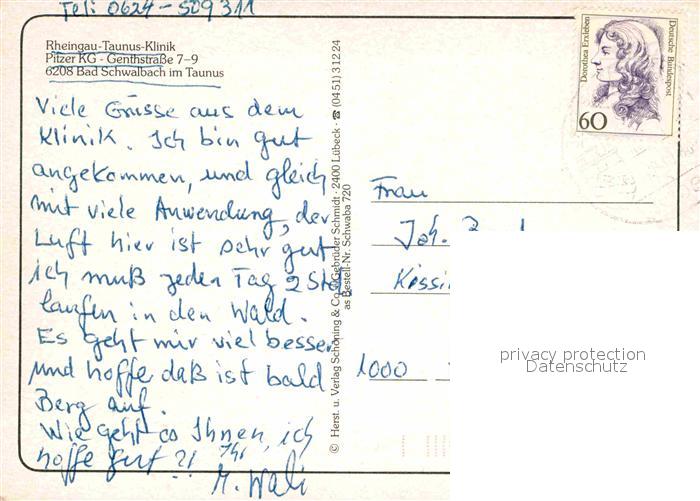 Tel: 0624 - 509311
Rheingau-Taunus-Klinik
Pitzer KG - Genthstraße 7-9
6208 Bad Schwalbach im Taunus
Viele Grüsse aus dem
Klinik. Ich bin gut
angekommen, und gleich
mit viele Anwendung, der
Luft hier ist sehr gut
ich muß jeden Tag 2 Std
laufen in den Wald.
Es geht mir viel besser
und hoffe daß ist bald
Berg auf.
Wie geht es Ihnen, ich
hoffe gut ?! Ihr
M. Wali
© Herst. u. Verlag Schöning & Co + Gebrüder Schmidt · 2400 Lübeck · ☎ (0451) 3 12 24
as Bestell-Nr. Schwaba 720
Dorothea Erxleben
Deutsche Bundespost
60
Frau
Joh.
1000
privacy protection
Datenschutz